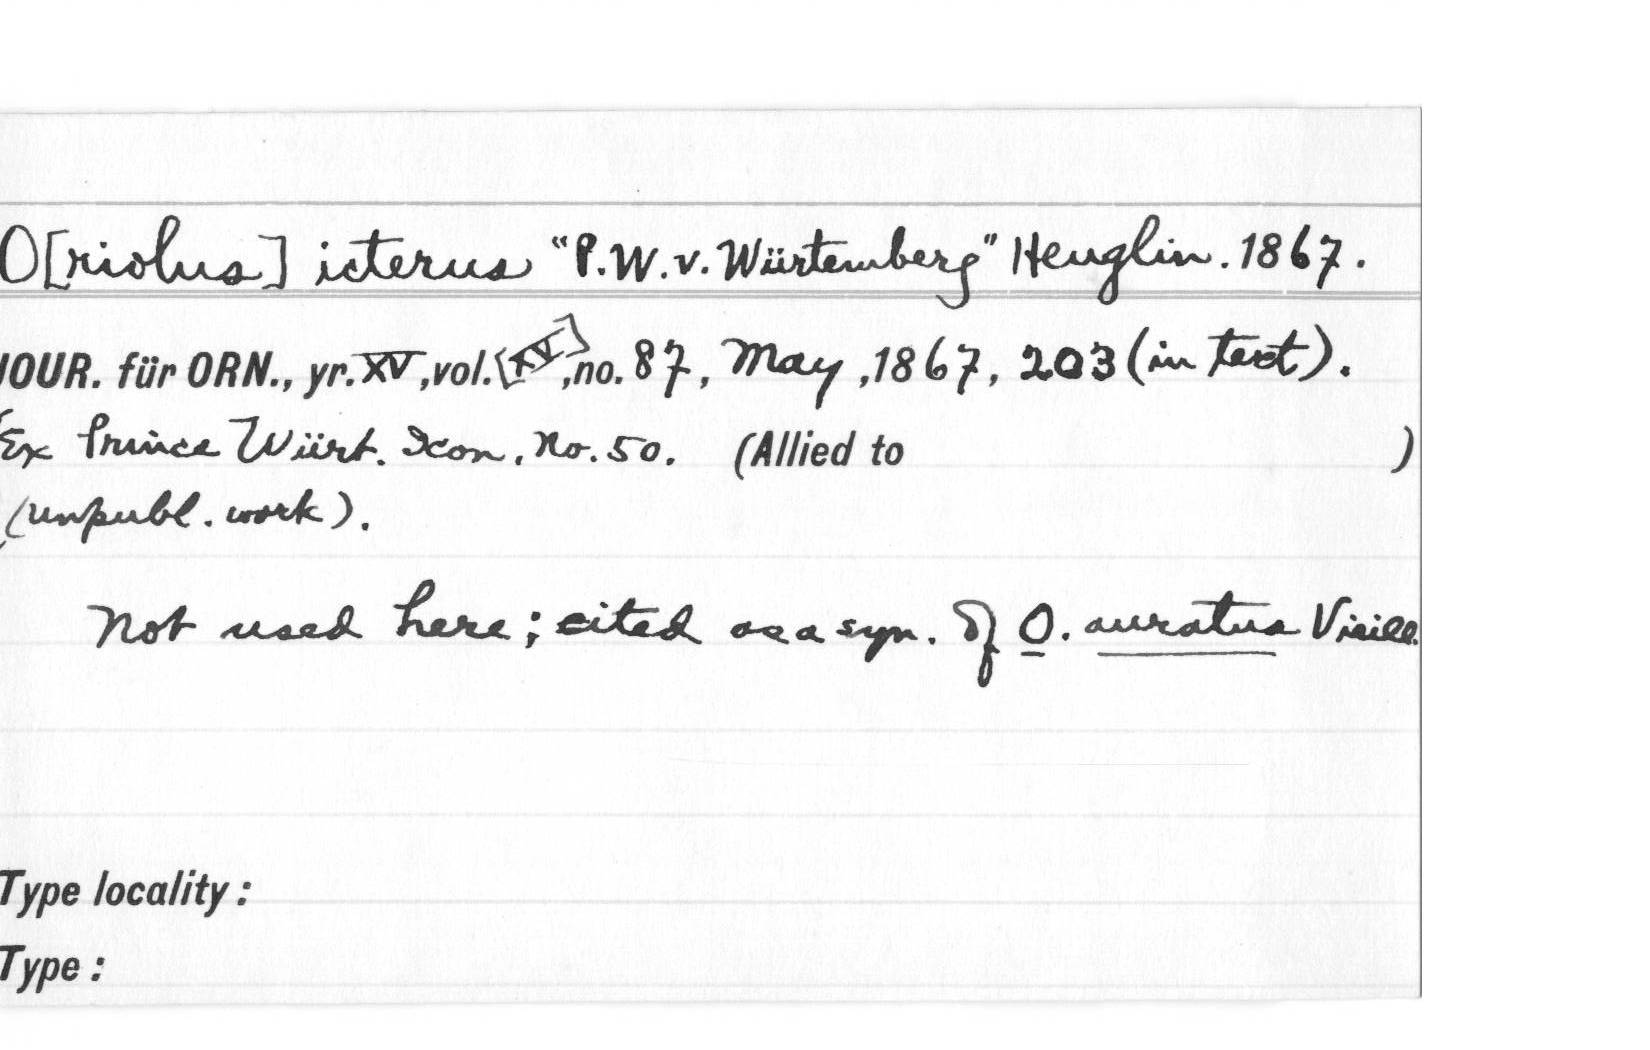 O[riolus] icterus "P.W.v. Würtemberg" Heuglin. 1867.
JOUR. für ORN., yr. XV, vol. [XV], no. 87, May, 1867, 203 (in text).
Ex Prince Würt. Icon. No. 50. (Allied to )
(unpubl. work).
Not used here; cited as a syn. of O. auratus Vieill.
Type locality:
Type: